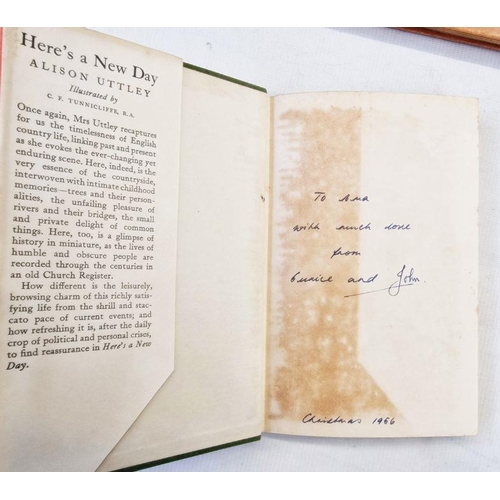 Here's a New Day
ALISON UTTLEY
Illustrated by
C. F. TUNNICLIFFE, R.A.
Once again, Mrs Uttley recaptures
for us the timelessness of English
country life, linking past and present
as she evokes the ever-changing yet
enduring scene. Here, indeed, is the
very essence of the countryside,
interwoven with intimate childhood
memories—trees and their person-
alities, the unfailing pleasure of
rivers and their bridges, the small
and private delight of common
things. Here, too, is a glimpse of
history in miniature, as the lives of
humble and obscure people are
recorded through the centuries in
an old Church Register.
How different is the leisurely,
browsing charm of this richly satis-
fying life from the shrill and stac-
cato pace of current events; and
how refreshing it is, after the daily
crop of political and personal crises,
to find reassurance in Here's a New
Day.
To
with much love
from
Eunice and John.
Christmas 1956